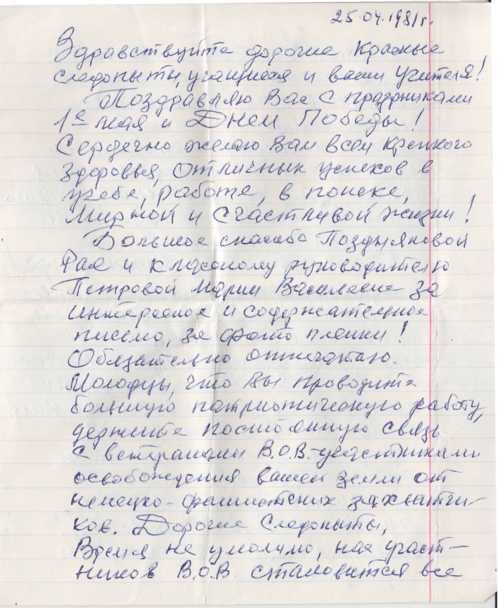 25.04.1981г.
Здравствуйте дорогие Красные
следопыты, учащиеся и ваши учителя!
Поздравляю Вас с праздниками
1е мая и Днем Победы!
Сердечно желаю Вам всем крепкого
здоровья, отличных успехов в
учебе, работе, в поиске,
мирной и счастливой жизни!
Большое спасибо Поздняковой
Рае и классному руководителю
Петровой Марии Васильевне за
интересное и содержательное
письмо, за фото пленки!
Обязательно отпечатаю.
Молодцы, что Вы проводите
большую патриотическую работу,
держите постоянную связь
с ветеранами В.О.В-участниками
освобождения вашей земли от
немецко-фашистских захватчи-
ков. Дорогие Следопыты,
Время не умолимо, нас участ-
ников В.О.В становится все